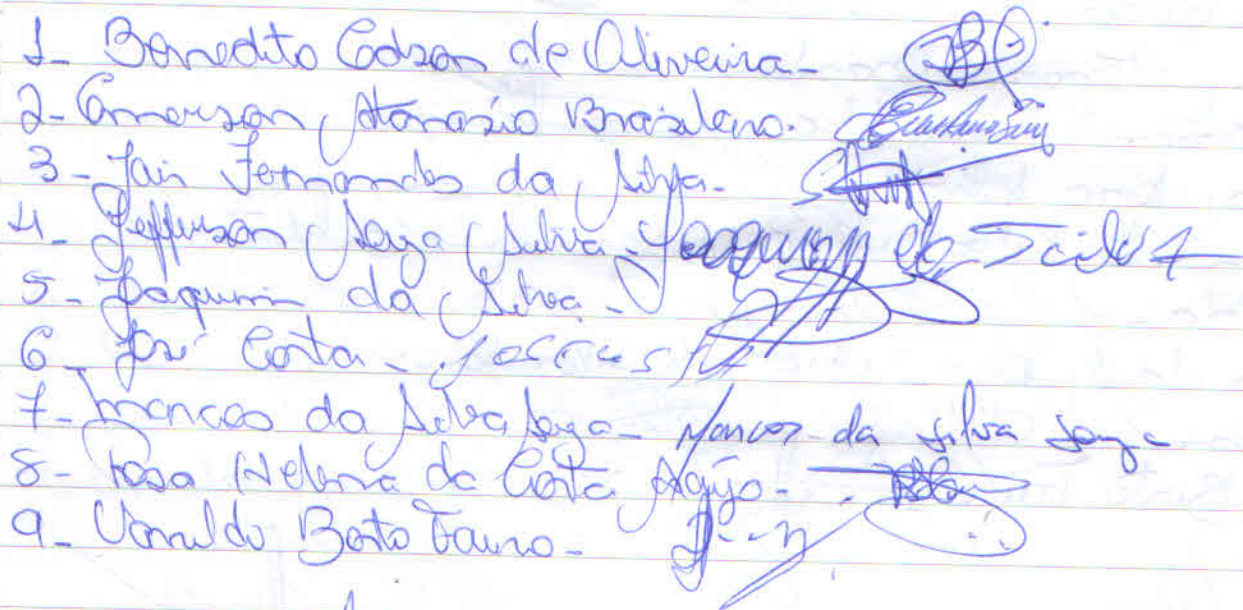 1- Benedito Edson de Oliveira-
2- Emerson Atanásio Brasileiro.
3- Jair Fernandes da Silva-
4- Jefferson Souza Silva- Joaquim da Scilva
5- Joaquim da Silva-
6- José Costa- Jose Costa
7- Marcos da Silva Souza- Marcos da Silva Souza
8- Rosa Helena da Costa
9- Bento